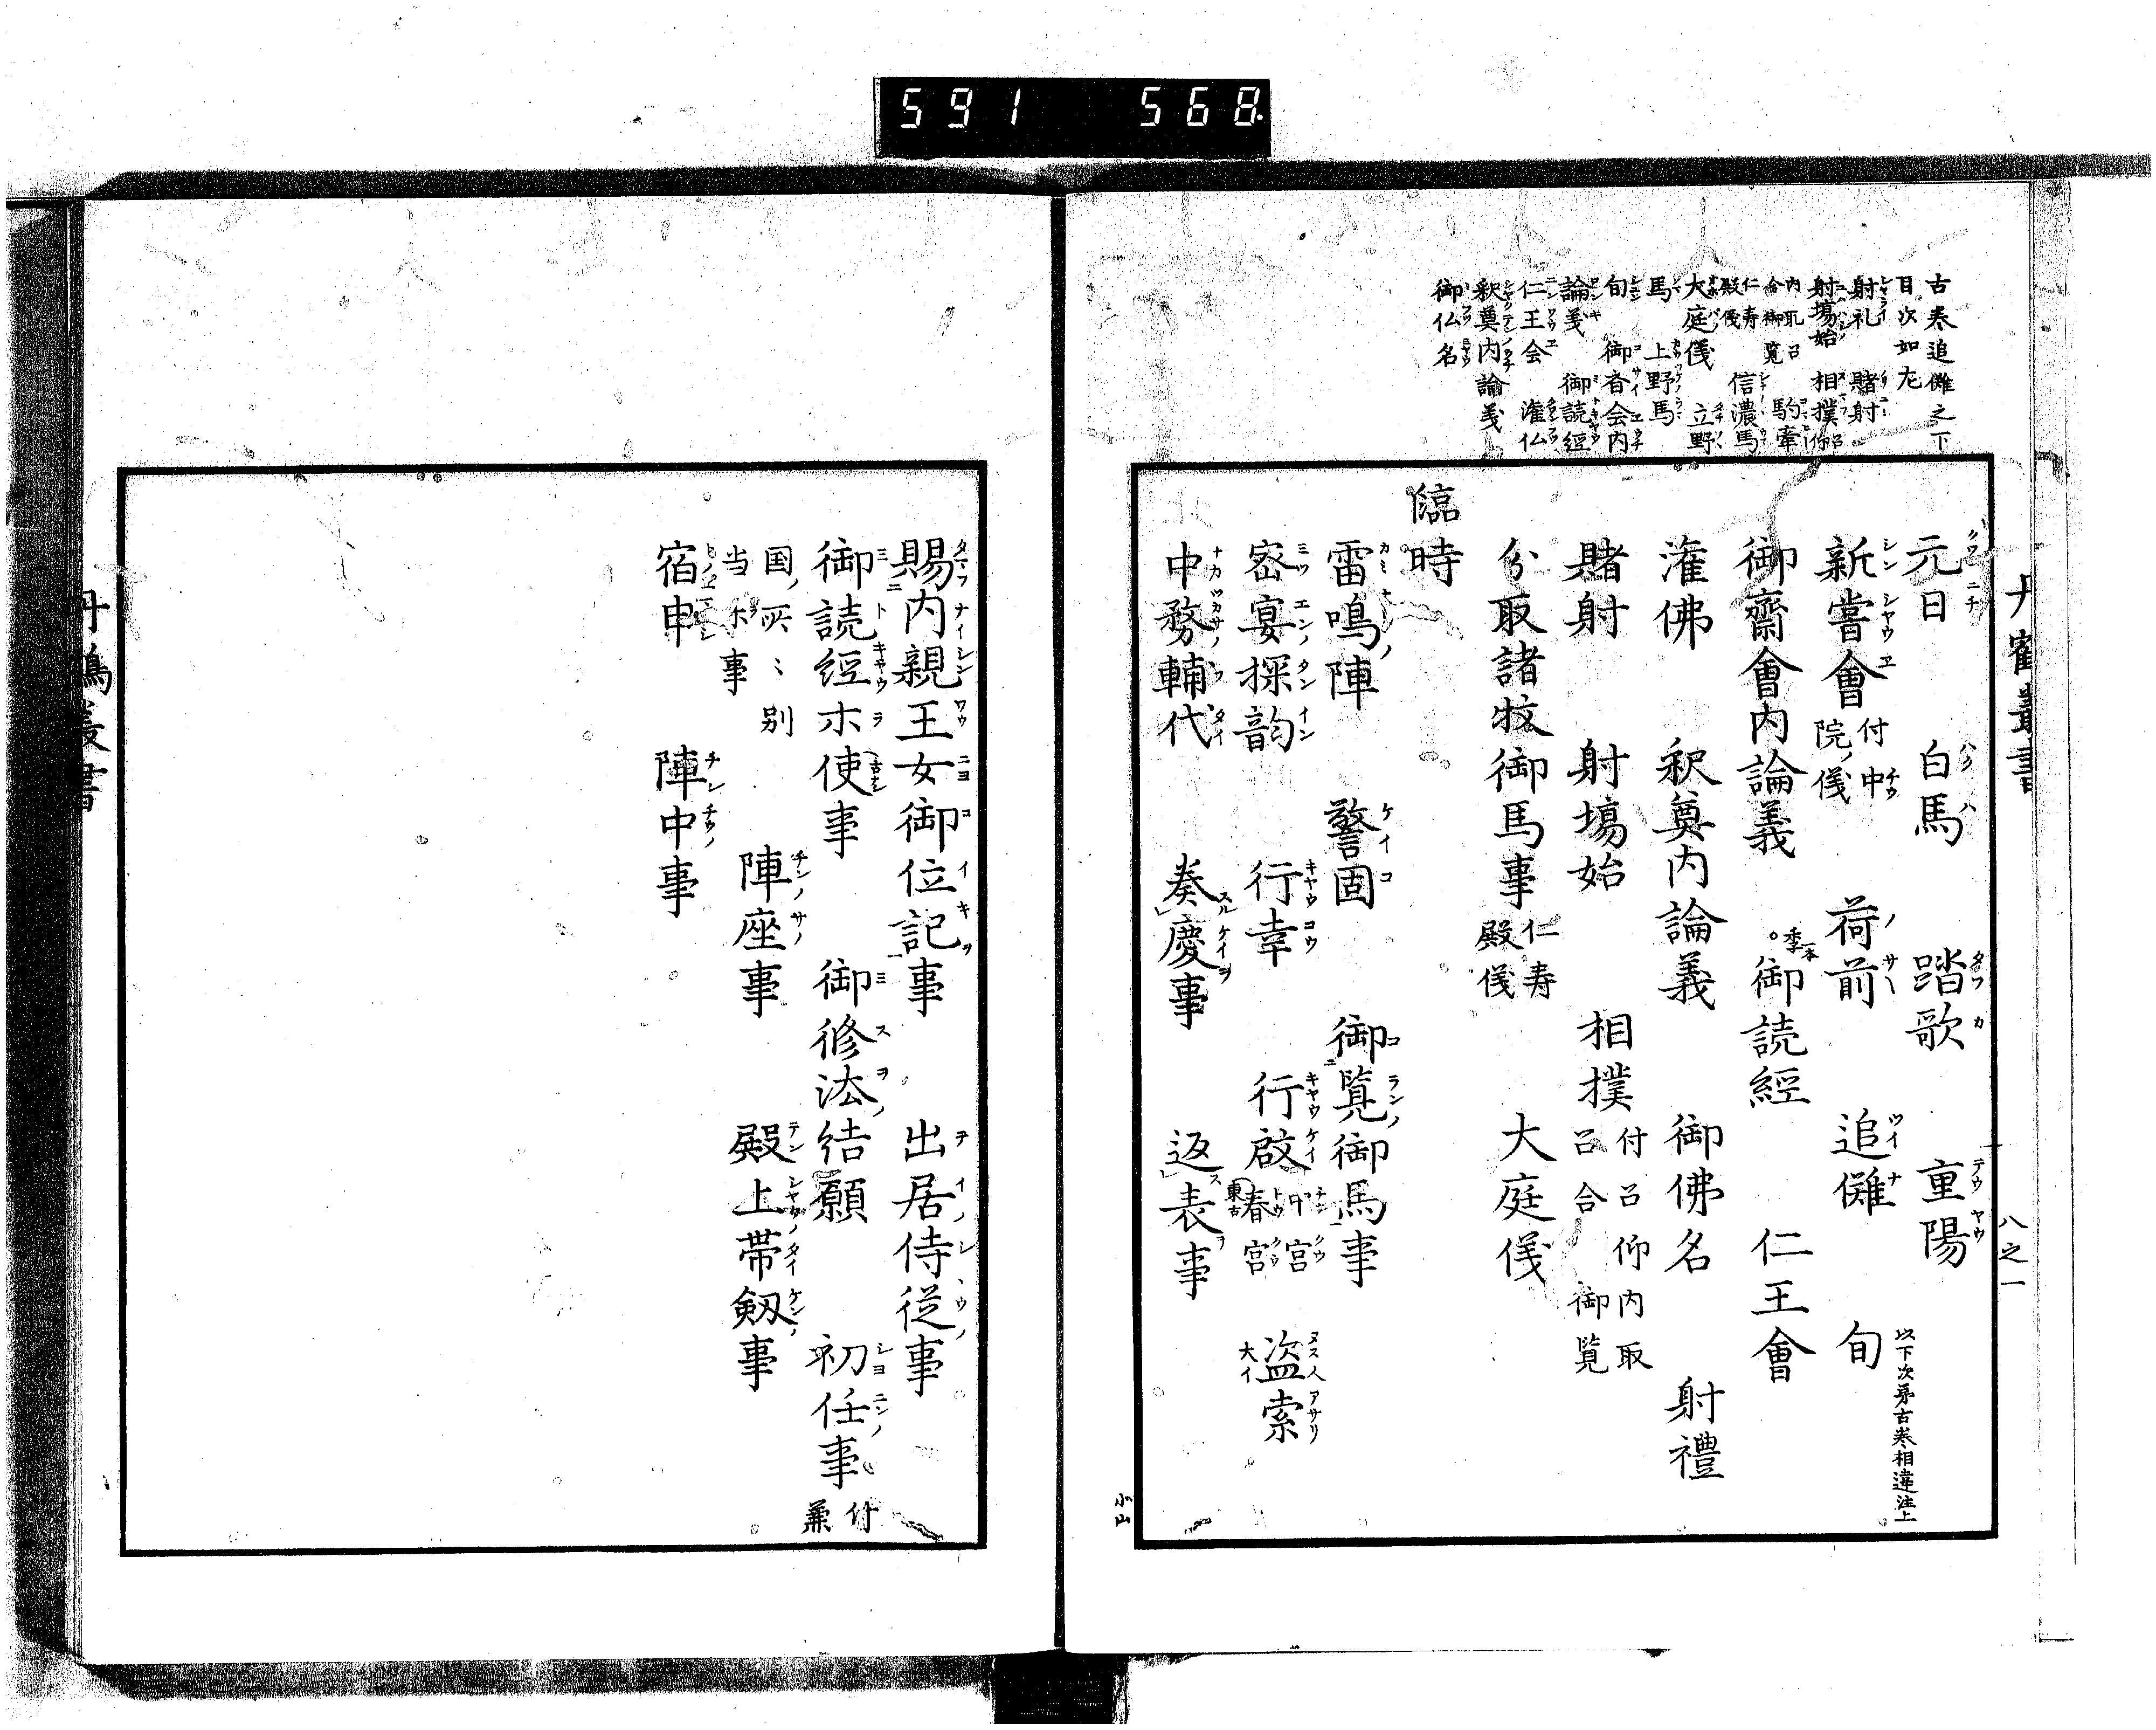 591 568
古巻追儺之下
目次如左
射礼 賭射
射場始 相撲召仰
内取召合御覧 駒牽
仁寿殿儀 信濃馬
大庭儀 立野
馬 上野馬
旬 御斎会内
論義 御読経
仁王会 潅仏
釈奠内論義
御仏名
丹鶴叢書
八之一
元日 白馬 踏歌 重陽
以下次第古巻相違注上
新嘗會 付中院ノ儀 荷前 追儺 旬
御齋會内論義 季一本 御読經 仁王會
潅佛 釈奠内論義 御佛名 射禮
賭射 射場始 相撲 付召仰内取召合御覧
分取諸牧御馬事 仁寿殿儀 大庭儀
臨時
雷鳴ノ陣 警固 御覧御馬事
密宴探韵 行幸 行啟 中宮春宮 東古 盗索 大イ
中務輔代 奏慶事 返表事
賜内親王女御位記事 出居侍従事
御読経ホ使事 御修法結願 初任事 付兼
国ノ 別当ホ事 陣座事 殿上帯剱事
宿申 陣中事
丹鶴叢書